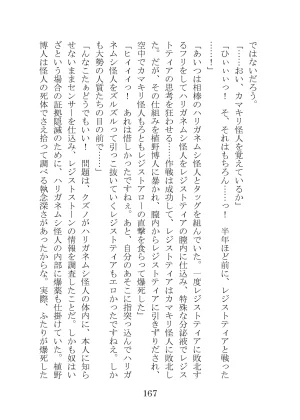 ではないだろう。
「……おい、カマキリ怪人を覚えているか」
「ひぃぃぃっ！　そ、それはもちろん……っ！　半年ほど前に、レジストティアと戦った
「あいつは相棒のハリガネムシ怪人とタッグを組んでいた。一度レジストティアに敗北す
るフリをしてハリガネムシ怪人をレジストティアの膣内に仕込み、特殊な分泌液でレジス
トティアの思考を狂わせる……作戦は成功して、レジストティアはカマキリ怪人に敗北し
た。だが、その仕組みを植野博人に暴かれ、膣内からレジストティアに引きずりだされ、
空中でカマキリ怪人もろともレジストアローの直撃を食らって爆死した」
「ヒィィィっ！　あれは惜しかったですねぇ。あと、自分のあそこに指突っ込んでハリガ
ネムシ怪人をズルズルって引っこ抜いていくレジストティアもエロかったですねぇ。しか
も大勢の人質たちの目の前で……」
「んなこたぁどうでもいい！　問題は、クズノがハリガネムシ怪人の体内に、本人に知ら
せないままセンサーを仕込み、レジストストーンの情報を調査したことだ。しかも奴はい
ざという場合の証拠隠滅のために、ハリガネムシ怪人の内部に爆薬も仕掛けていた。植野
博人は怪人の死体でさえ拾って調べる執念深さがあったからな。実際、ふたりが爆死した
167